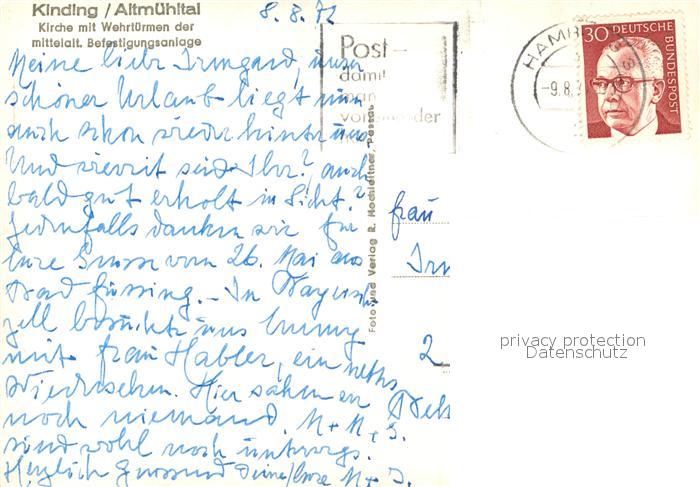 Kinding / Altmühltal
Kirche mit Wehrtürmen der
mittelalt. Befestigungsanlage
8. 8. 72
Post-
damit
man
von der
HAMB
-9.8.
30 DEUTSCHE BUNDESPOST
Meine liebe Irmgard, unser
schöner Urlaub liegt nun
auch schon wieder hinter uns.
Und wieweit seid Ihr?, auch
bald gut erholt in Sicht?
Jedenfalls danken wir für
Eure Grüsse vom 26. Mai aus
Bad Füssing. - In Bayrisch
zell besuchte uns
mit Frau Habler, ein nettes
Wiedersehen. Hier sahen wir
noch niemand. M + M + J.
sind wohl noch unterwegs.
Herzlich Deine/Eure M + J.
Foto und Verlag R. Hochleitner, Passau
Frau
Irm
2
privacy protection
Datenschutz